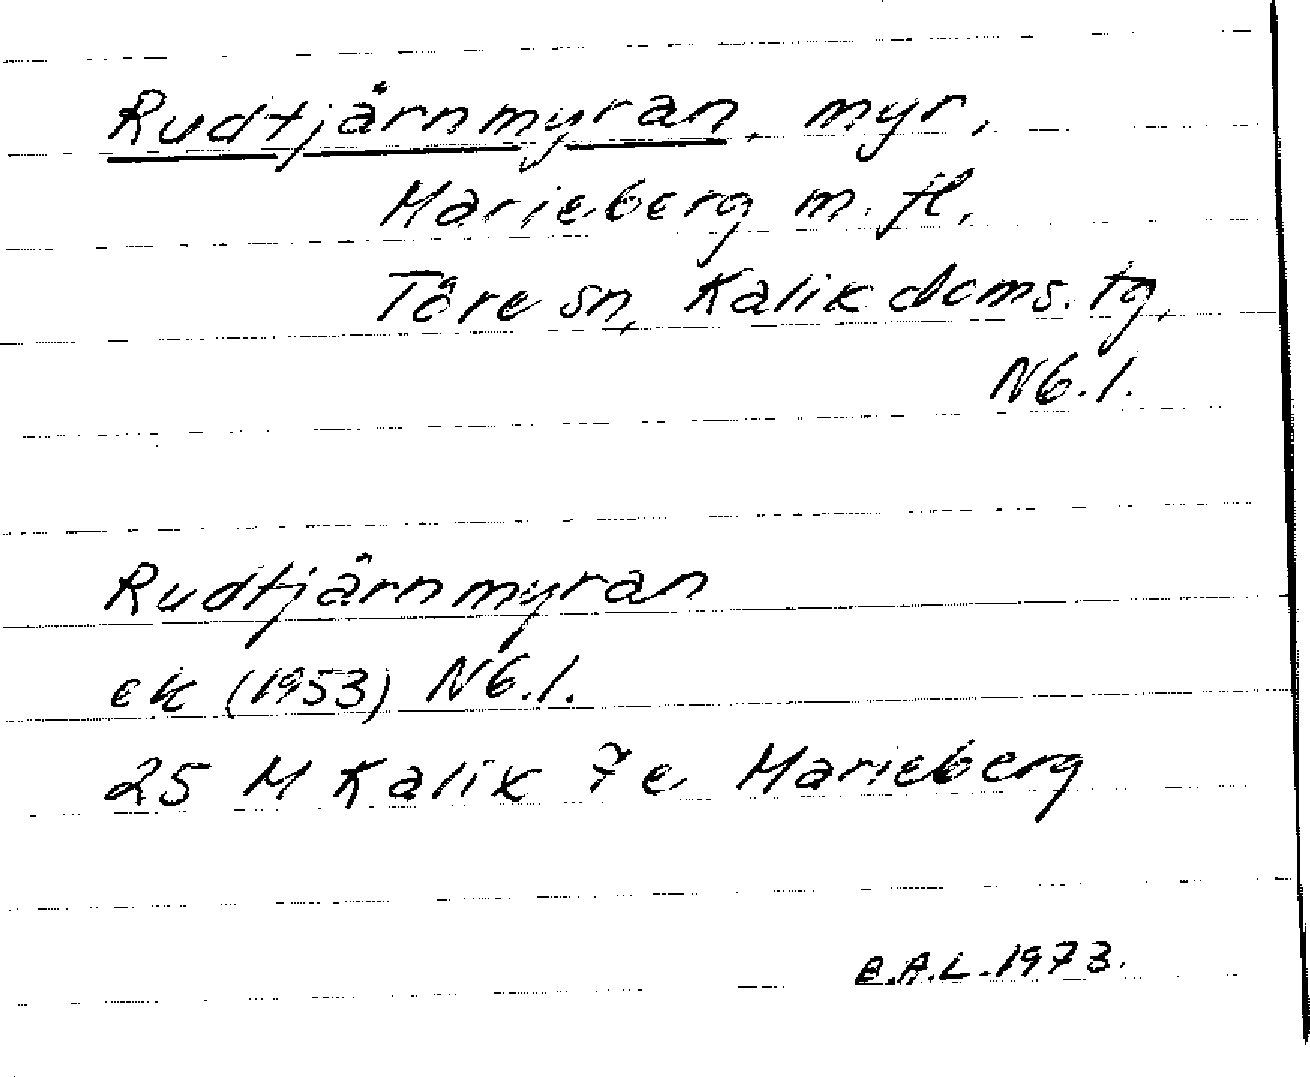 Rudtjärnmyran, myr,
Marieberg m. fl.
Töre sn, Kalix doms. tg,
Nb. l.
Rudtjärnmyran
ek (1953) Nb. l.
25 M Kalix 7 e Marieberg
A.L. 1973.